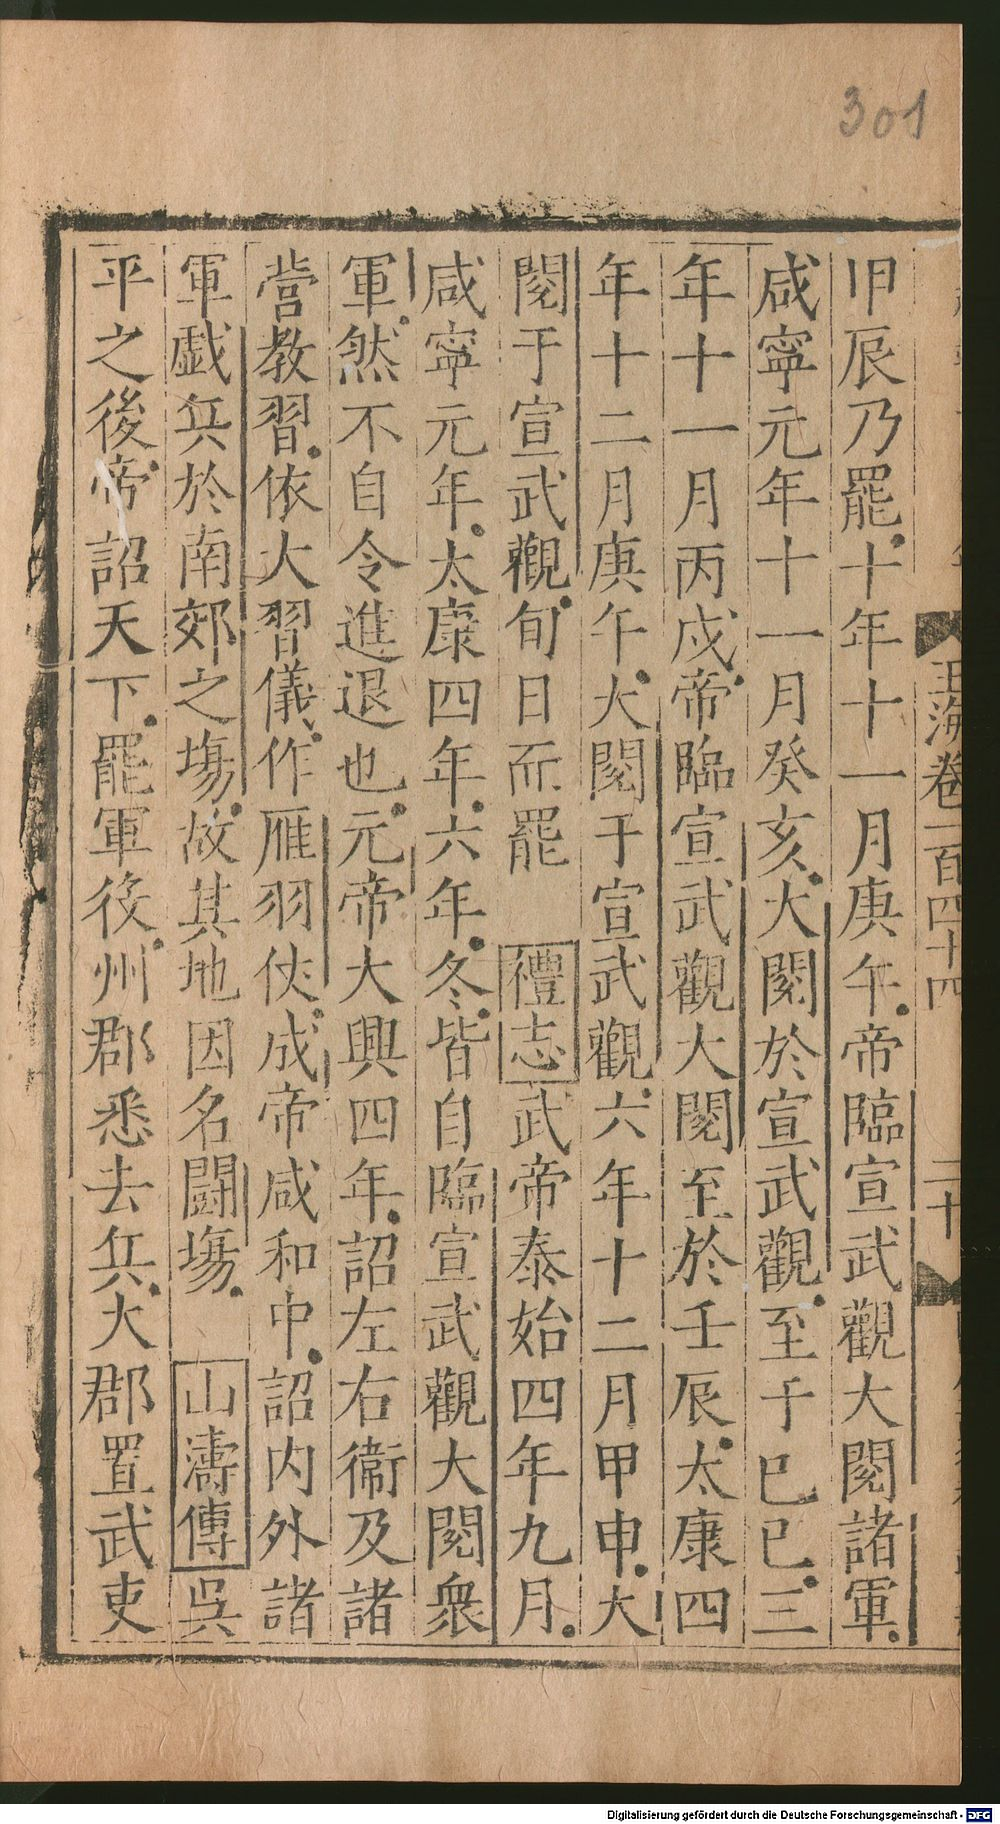 301
玉海卷一百四十四 二十
甲辰乃罷十年十一月庚午帝臨宣武觀大閱諸軍
咸寧元年十一月癸亥大閱於宣武觀至于己巳三
年十一月丙戌帝臨宣武觀大閱至於壬辰太康四
年十二月庚午大閱于宣武觀六年十二月甲申大
閱于宣武觀旬日而罷 禮志武帝泰始四年九月
咸寧元年太康四年六年冬皆自臨宣武觀大閱衆
軍然不自令進退也元帝大興四年詔左右衞及諸
營教習依大習儀作雁羽仗成帝咸和中詔内外諸
軍戱兵於南郊之塲故其地因名鬬塲 山濤傳吳
平之後帝詔天下罷軍役州郡悉去兵大郡置武吏
Digitalisierung gefördert durch die Deutsche Forschungsgemeinschaft - DFG